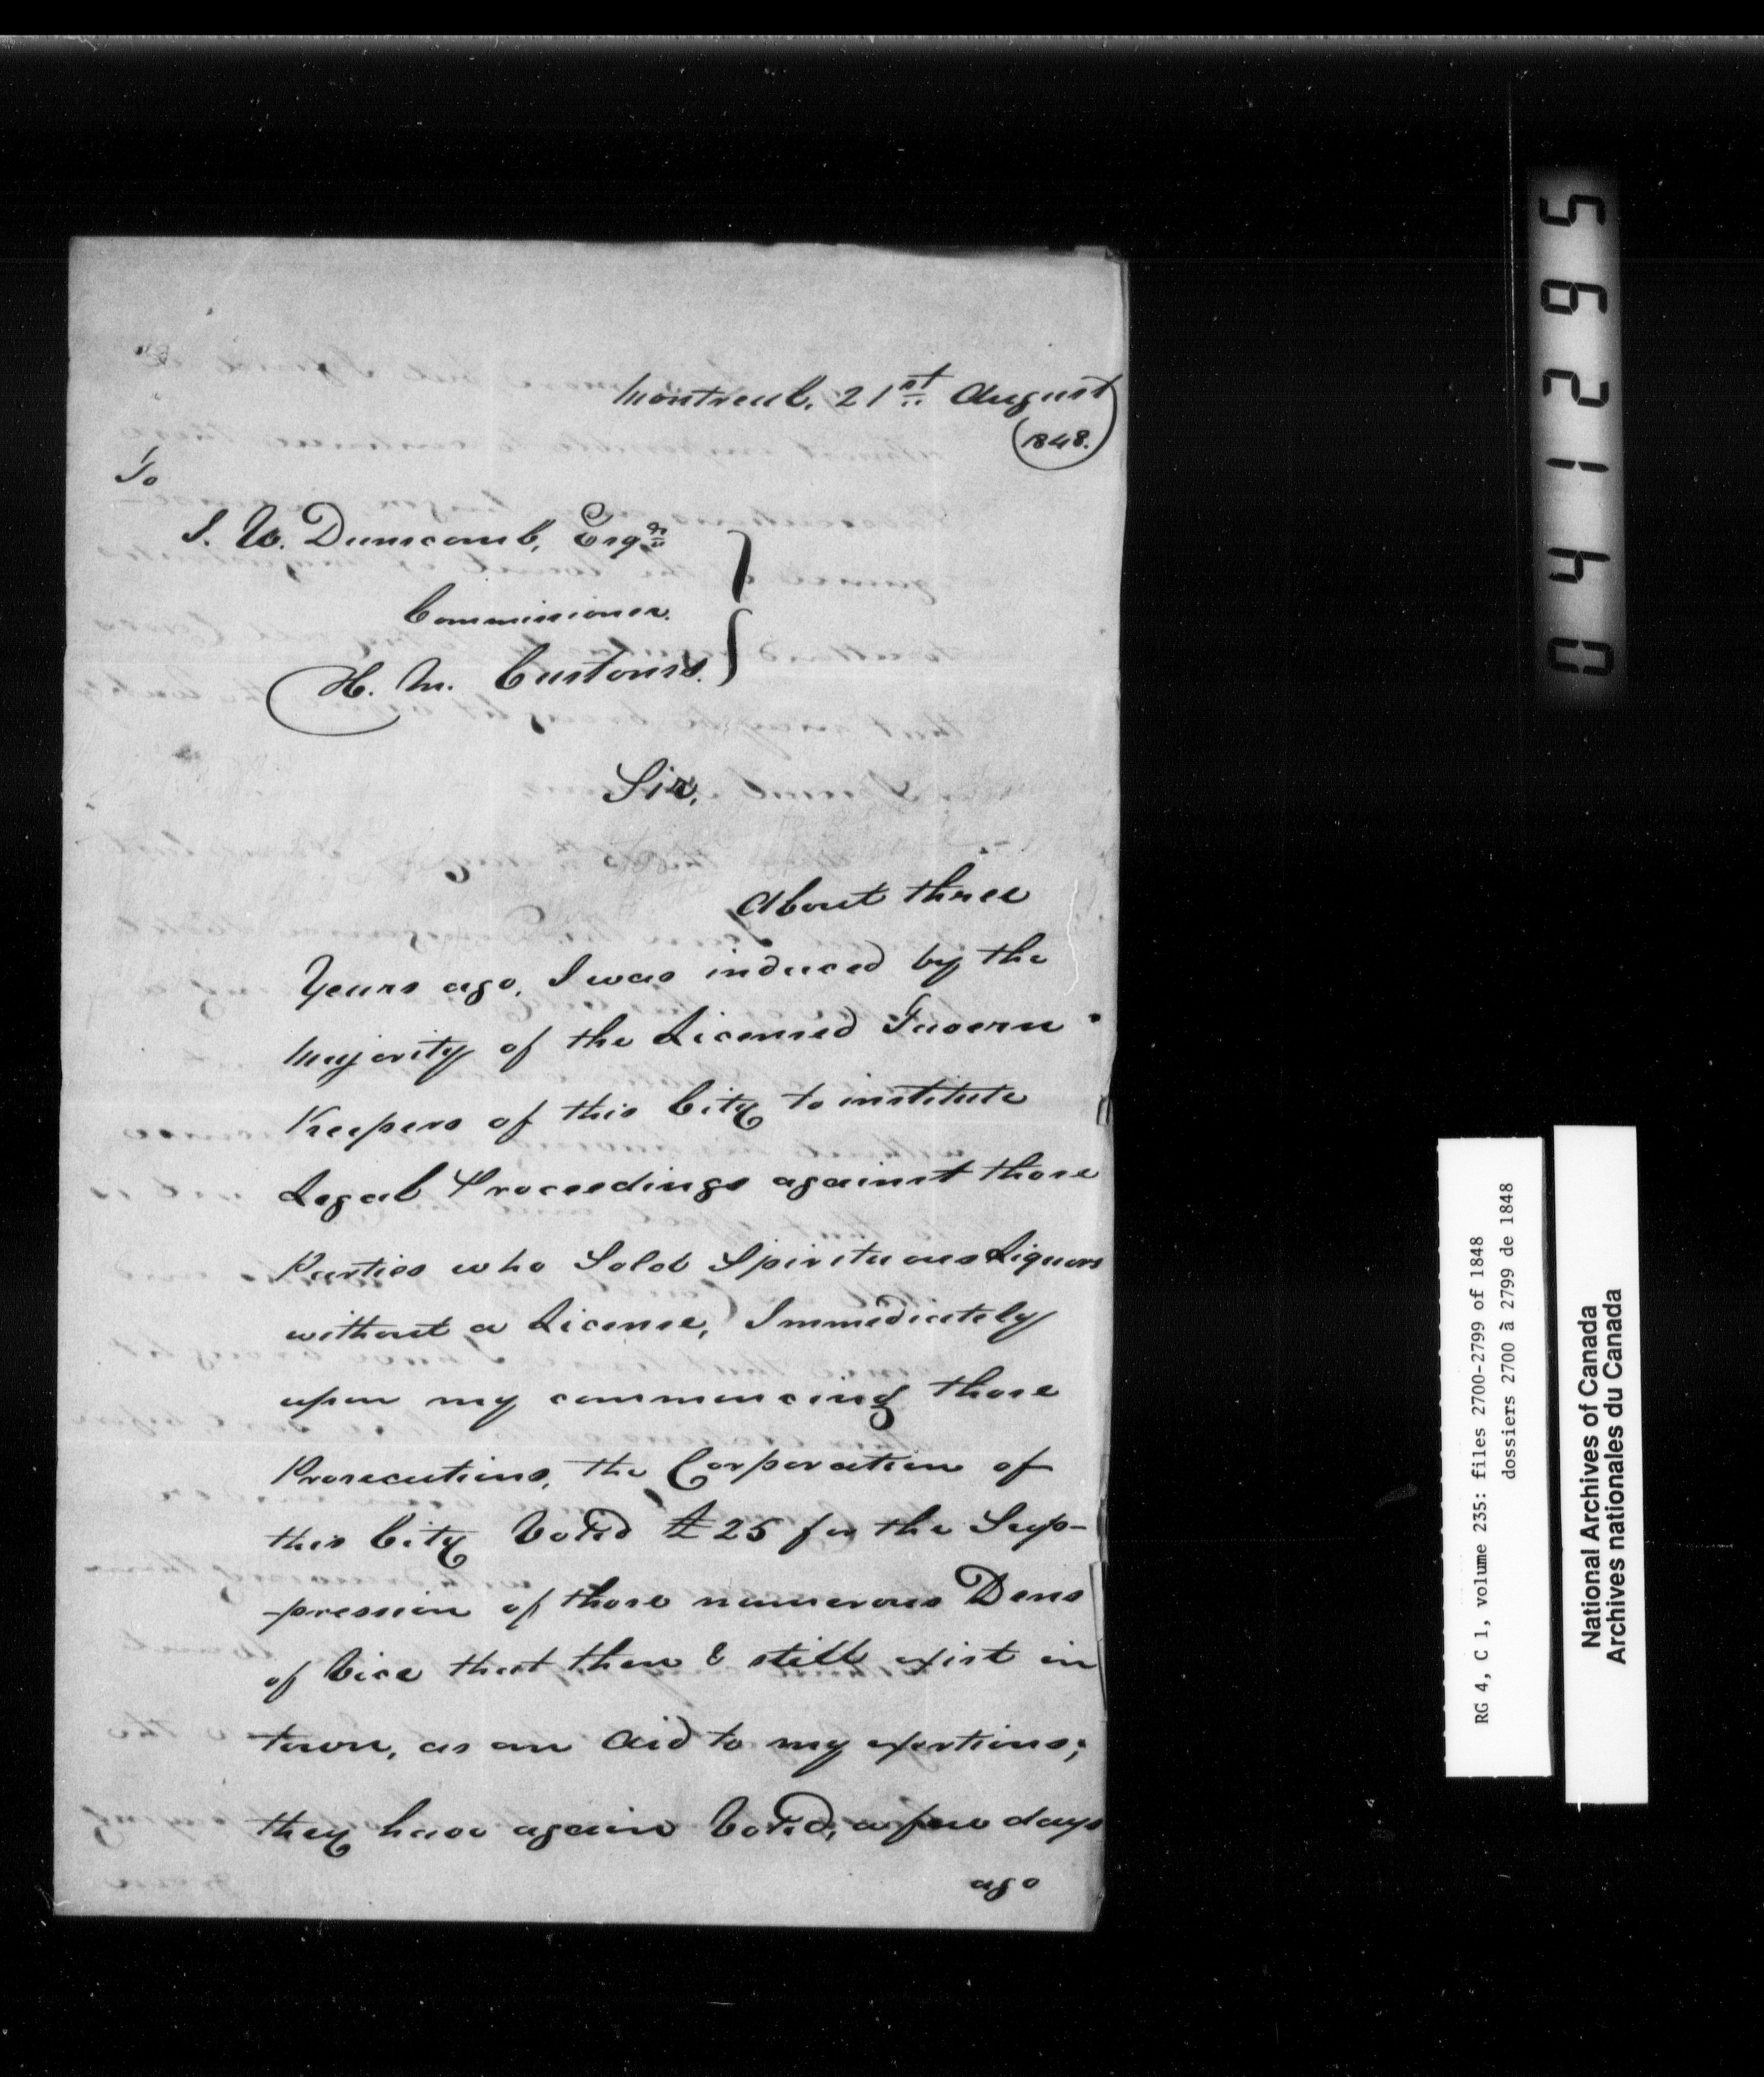 Montreal, 21st August
1848.
To
J. W. Dunscomb, Esqre
Commissioner
H. M. Customs.
Sir,
About three
Years ago, I was induced by the
Majority of the Licensed Tavern
Keepers of this City to institute
Legal Proceedings against those
Parties who Sold Spirituous Liquors
without a License, Immediately
upon my commencing those
Prosecutions, the Corporation of
this City Voted £25 for the Sup-
-pression of those numerous Dens
of Vice that then & still exist in
town, as an Aid to my exertions;
they have again Voted, a few days
ago
041295
RG 4, C 1, volume 235: files 2700-2799 of 1848
dossiers 2700 à 2799 de 1848
National Archives of Canada
Archives nationales du Canada